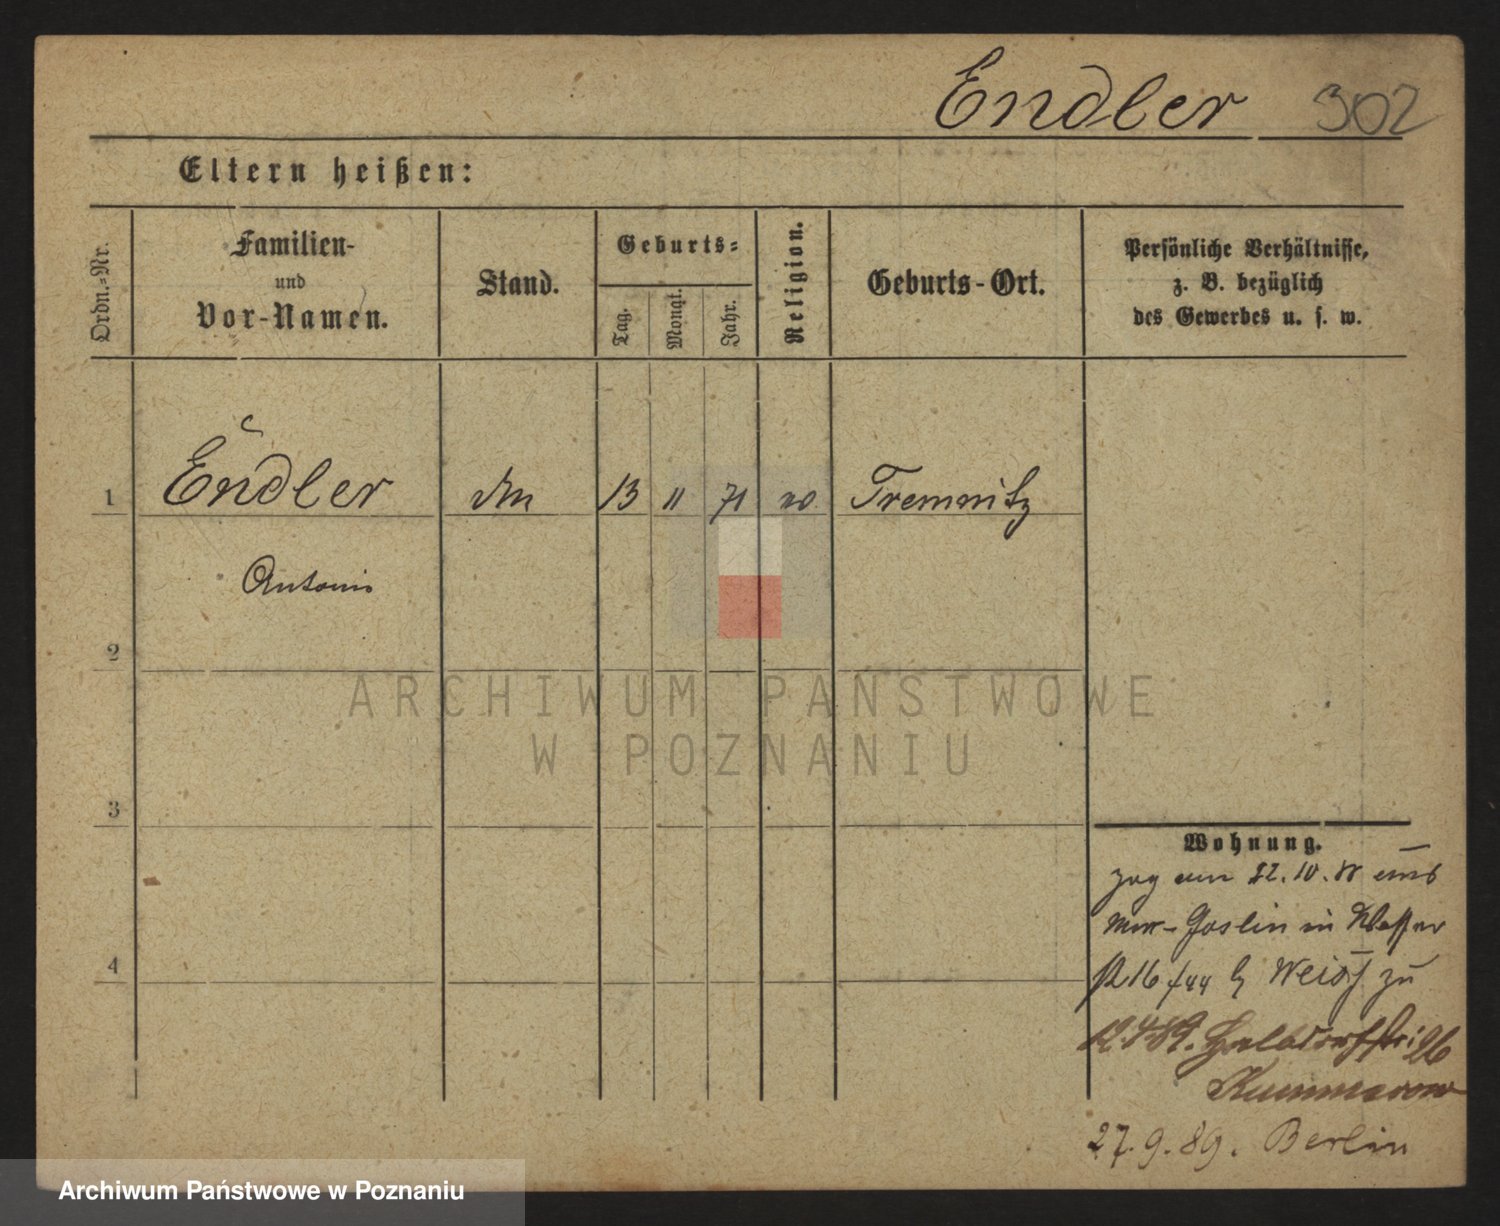 Endler 302
Eltern heißen:
Ordn.-Nr.
Familien-
und
Vor-Namen.
Stand.
Geburts-
Tag.
Monat.
Jahr.
Religion.
Geburts-Ort.
Persönliche Verhältnisse,
z. B. bezüglich
des Gewerbes u. s. w.
1 Endler 13 11 71 Tremnitz
Anton
2
ARCHIWUM PAŃSTWOWE
W POZNANIU
3
Wohnung.
zog am 22.10. aus
Goslin in
4
16 Weiß zu
12.4.89. Halbdorfstr. 26
Kummerow
27.9.89. Berlin
Archiwum Państwowe w Poznaniu